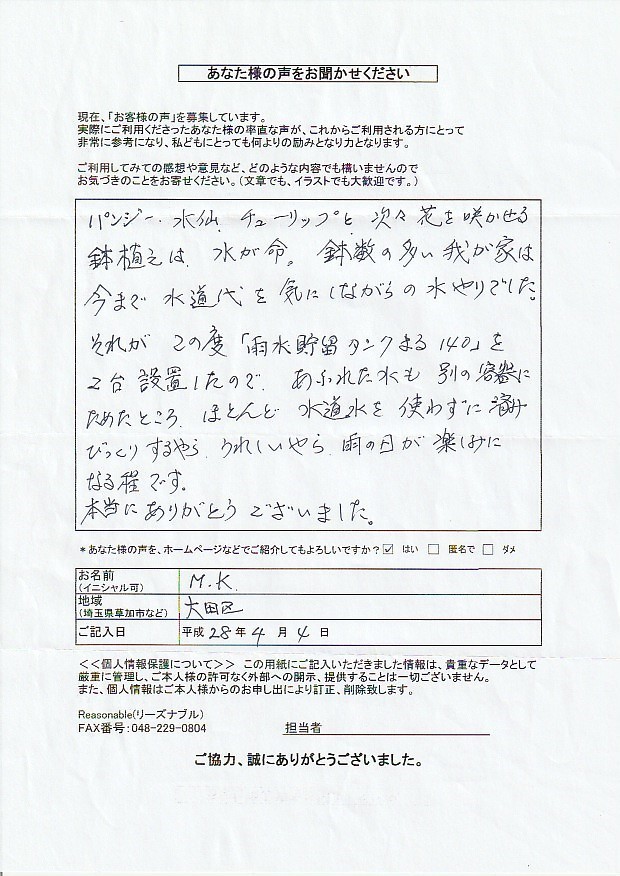 あなた様の声をお聞かせください
現在、「お客様の声」を募集しています。
実際にご利用くださったあなた様の率直な声が、これからご利用される方にとって
非常に参考になり、私どもにとっても何よりの励みとなり力となります。
ご利用してみての感想や意見など、どのような内容でも構いませんので
お気づきのことをお寄せください。(文章でも、イラストでも大歓迎です。)
パンジー、水仙、チューリップと、次々花を咲かせる
鉢植えは、水が命。鉢数の多い我が家は
今まで水道代を気にしながらの水やりでした。
それがこの度「雨水貯留タンクまる140」を
2台設置したので、あふれた水も別の容器に
ためたところ、ほとんど水道水を使わずに済み
びっくりするやら、うれしいやら、雨の日が楽しみに
なる程です。
本当にありがとうございました。
*あなた様の声を、ホームページなどでご紹介してもよろしいですか?☑ はい □ 匿名で □ ダメ
お名前
(イニシャル可) M.K.
地域
(埼玉県草加市など) 大田区
ご記入日 平成 28 年 4 月 4 日
<<個人情報保護について>> この用紙にご記入いただきました情報は、貴重なデータとして
厳重に管理し、ご本人様の許可なく外部への開示、提供することは一切ございません。
また、個人情報はご本人様からのお申し出により訂正、削除致します。
Reasonable(リーズナブル)
FAX番号:048-229-0804 担当者
ご協力、誠にありがとうございました。